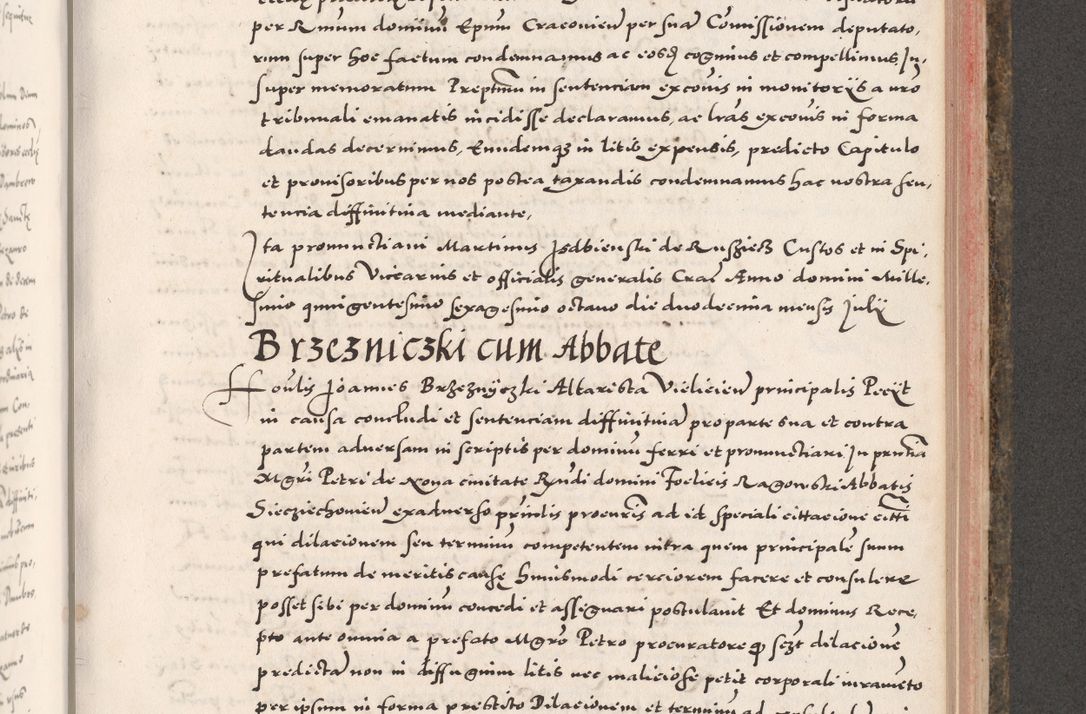 per R̃mum dominũ Ep̃um Cracovieñ per suã Comissionem deputato,
rum super hoc factum condemnamus ac eosdẽ cogimus et compellimus Jn,
super memoratum Preptum in sentenciam excõis in monitorijs a nr̃o
tribunali emanatis incidisse declaramus, ac lr̃as excõis in forma
dandas decernimus, Eundemq3 in litis expensis, predicto Capitulo
et provisoribus per nos postea taxandis condemnamus hac nostra sen,
tencia diffinitiva mediante,
Jta pronunctiavi Martinus Jsdbienski de Rusziecz Custos et in Spi,
ritualibus Viccarius et officialis generalis Crac̃ Anno domini Mille,
simo quingentesimo sexagesimo octavo die duodecima mensis Julij
Brzezniczki cum Abbate
Hoñlis Joannes Brzeznyczki Altarista Vielicieñ principalis Pecijt
in causa concludi et sentenciam diffinitivã pro parte sua et contra
partem adversam in scriptis per dominum ferri et pronunctiari Jn pñtia
Mgr̃i Petri de Nova civitate R̃ndi domini Foelicis Ragowski Abbatis
Siecziechovieñ ex adverso principlis procur̃is ad id speciali cittacione citt̃i
qui dilacionem seu terminũ competentem intra quem principalẽ suum
prefatum de meritis causę huiusmodi cerciorem facere et consulere
posset sibi per dominũ concedi et assegnari postulavit Et dominus Rece,
pto ante omnia a prefato Mgrõ Petro procuratore dilacionẽ
predictã non in diffugium litis nec maliciose petit corporali iuramẽto
per ipsum in forma prestito Dilacionem et terminũ ad